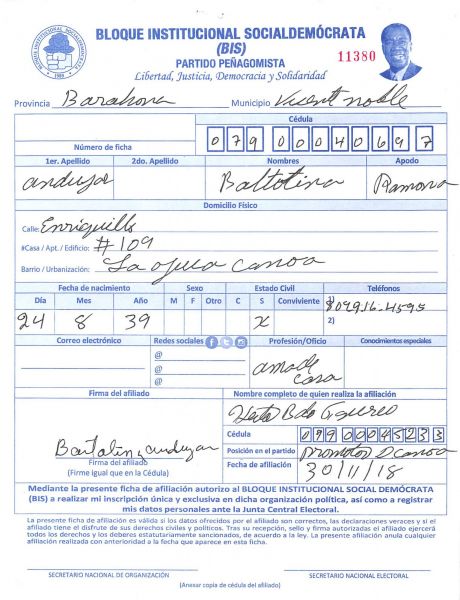 BLOQUE INSTITUCIONAL SOCIALDEMÓCRATA
(BIS)
PARTIDO PEÑAGOMISTA
Libertad, Justicia, Democracia y Solidaridad
11380
Provincia Barahona Municipio Vicente noble
Cédula
Número de ficha 079 0004069 7
1er. Apellido 2do. Apellido Nombres Apodo
andujar Baltotina Ramona
Domicilio Físico
Calle: Enriquillo
#Casa / Apt. / Edificio: #109
Barrio / Urbanización: La canoa
Fecha de nacimiento Sexo Estado Civil Teléfonos
Día Mes Año M F Otro C S Conviniente 1) 809 916-4595
24 8 39 x 2)
Correo electrónico Redes sociales Profesión/Oficio Conocimientos especiales
@
@ ama de
@ casa
Firma del afiliado Nombre completo de quien realiza la afiliación
Cédula 079 0004523 3
Posición en el partido promotor D Canoa
Firma del afiliado Fecha de afiliación 30/11/18
(Firme igual que en la Cédula)
Mediante la presente ficha de afiliación autorizo al BLOQUE INSTITUCIONAL SOCIAL DEMÓCRATA
(BIS) a realizar mi inscripción única y exclusiva en dicha organización política, así como a registrar
mis datos personales ante la Junta Central Electoral.
La presente ficha de afiliación es válida si los datos ofrecidos por el afiliado son correctos, las declaraciones veraces y si el
afiliado tiene el disfrute de sus derechos civiles y políticos. Tras su recepción, sello y firma autorizadas el afiliado ejercerá
todos los derechos y los deberes estatutariamente sancionados, de acuerdo a la ley. La presente afiliación anula cualquier
afiliación realizada con anterioridad a la fecha que aparece en esta ficha.
SECRETARIO NACIONAL DE ORGANIZACIÓN SECRETARIO NACIONAL ELECTORAL
(Anexar copia de cédula del afiliado)